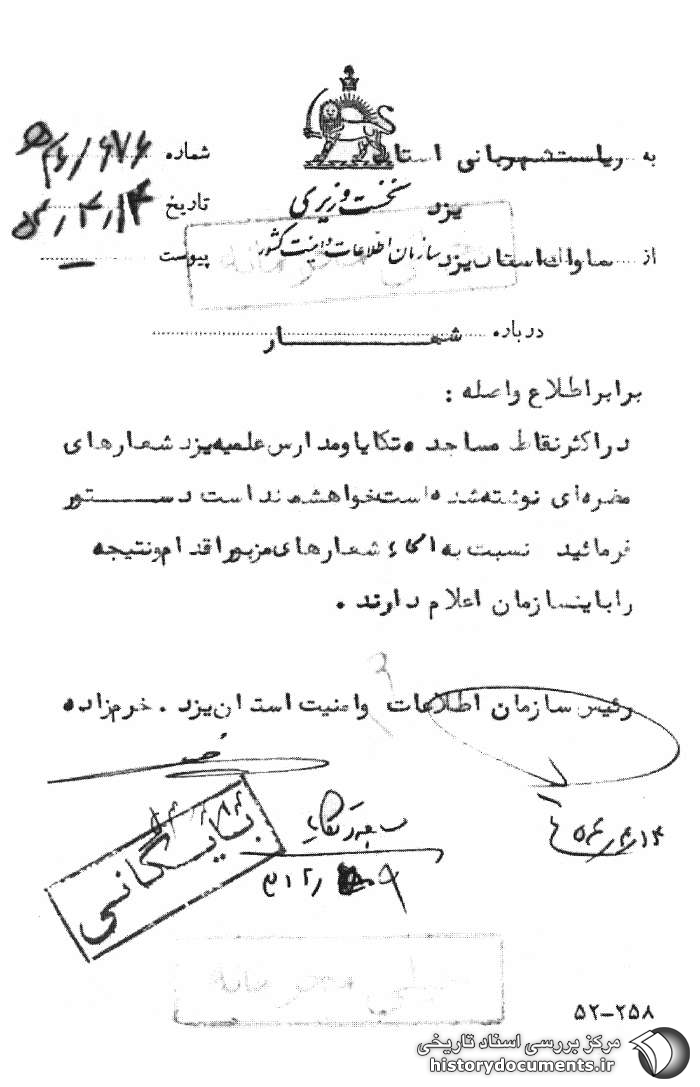 به ریاست شهربانی استان
یزد
از ساواک استان یزد
نخست وزیری
سازمان اطلاعات و امنیت کشور
شماره
تاریخ
پیوست —
درباره شعار
برابر اطلاع واصله :
در اکثر نقاط مساجد و تکایا و مدارس علمیه یزد شعارهای
مضره‌ای نوشته شده است خواهشمند است دستور
فرمائید نسبت به امحاء شعارهای مزبور اقدام و نتیجه
را باینسازمان اعلام دارند .
رئیس سازمان اطلاعات و امنیت استان یزد . خرم‌زاده
بایگانی
خیلی محرمانه
۵۲-۲۵۸
مرکز بررسی اسناد تاریخی
historydocuments.ir